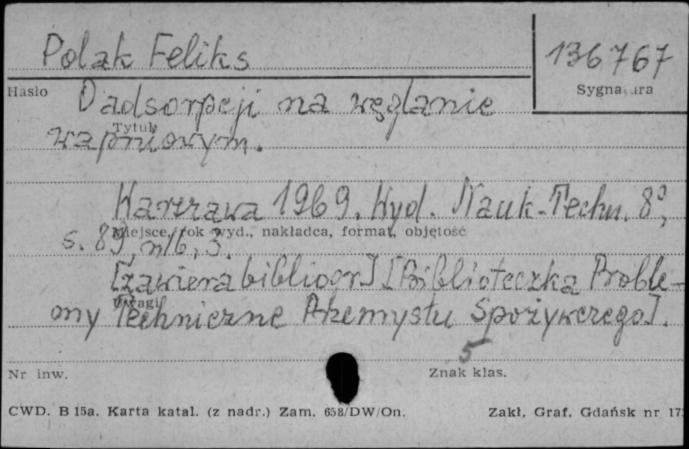 Polak Feliks
136767
Hasło
Sygnatura
O adsorpcji na węglanie
Tytuł
wapniowym.
Warszawa 1969. Wyd. Nauk-Techn. 8°,
Miejsce, rok wyd., nakładca, format, objętość
s. 89, nlb, 3.
[zawiera bibliogr] [Biblioteczka Proble-
Uwagi
my Techniczne Przemysłu Spożywczego].
5
Nr inw.
Znak klas.
CWD. B 15a. Karta katal. (z nadr.) Zam. 658/DW/On.
Zakł. Graf. Gdańsk nr 17